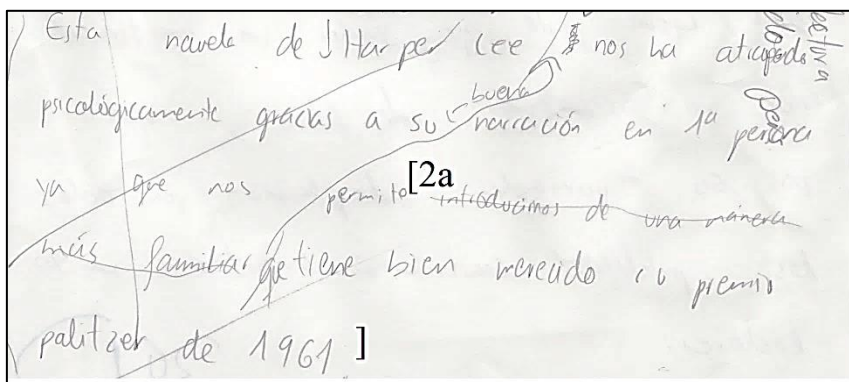 Esta novela de Harper Lee nos ha atrapado
psicológicamente gracias a su buena narración en 1ª persona
ya que nos [2a permite introducirnos de una manera
más familiar que tiene bien merecido su premio
palitzer de 1961 ]
lectura
pero